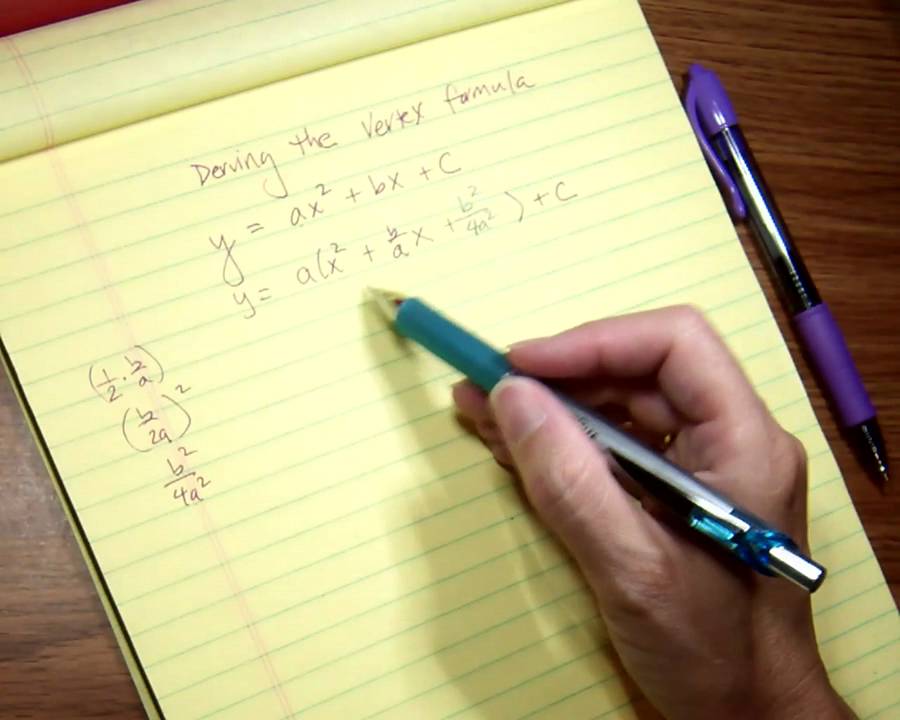 Deriving the vertex formula
y = ax² + bx + c
y = a(x² + b/a x + b²/4a²) + c
(1/2 · b/a)
(b/2a)²
b²/4a²